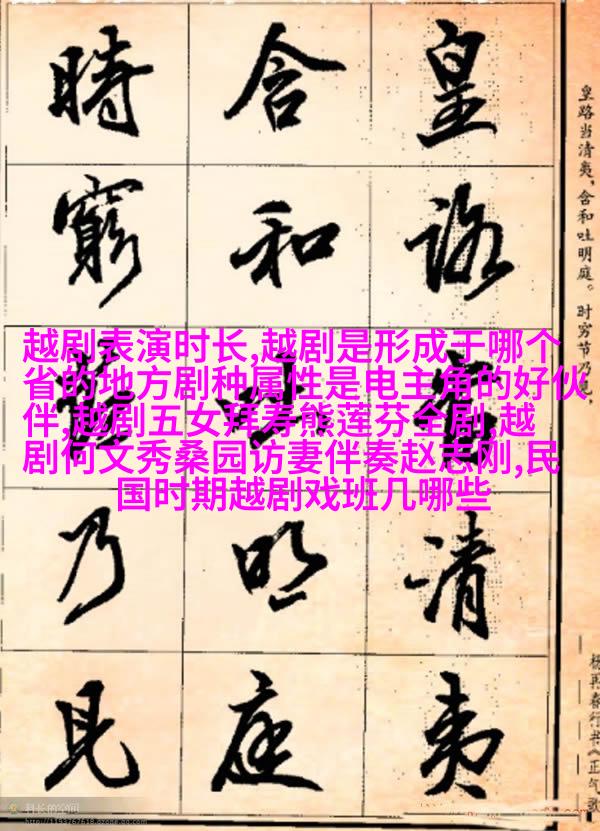 皇路当清夷，含和吐明庭。时穷节乃见，
杨再春行书《正气歌
皇路當清夷
含和吐明庭
時窮節乃見
越剧表演时长,越剧是形成于哪个
省的地方剧种属性是电主角的好伙
伴,越剧五女拜寿熊莲芬全剧,越
剧何文秀桑园访妻伴奏赵志刚,民
国时期越剧戏班几哪些
科长的空间
http://1193767618.qzone.qq.com